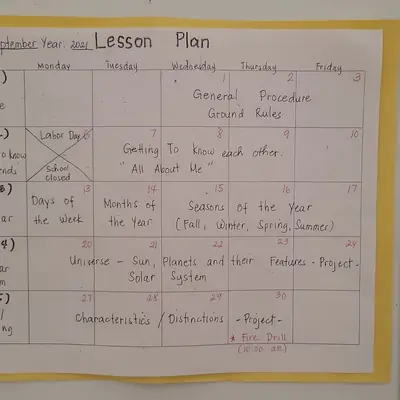 September Year: 2021 Lesson Plan
Monday Tuesday Wednesday Thursday Friday
1 2 3
General Procedure
Ground Rules
Labor Day 6 7 8 9 10
School
closed
Getting To know each other.
"All About Me"
to know
13 14 15 16 17
Days of
the Week
Months of
the Year
Seasons of the Year
(Fall, Winter, Spring, Summer)
20 21 22 23 24
Universe - Sun, Planets and their Features - Project -
Solar System
27 28 29 30
Characteristics / Distinctions - Project -
* Fire Drill